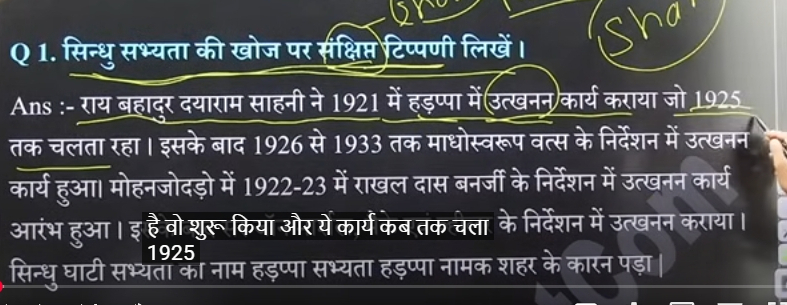 Q 1. सिन्धु सभ्यता की खोज पर संक्षिप्त टिप्पणी लिखें।
Ans :- राय बहादुर दयाराम साहनी ने 1921 में हड़प्पा में उत्खनन कार्य कराया जो 1925
तक चलता रहा। इसके बाद 1926 से 1933 तक माधोस्वरूप वत्स के निर्देशन में उत्खनन
कार्य हुआ। मोहनजोदड़ो में 1922-23 में राखल दास बनर्जी के निर्देशन में उत्खनन कार्य
आरंभ हुआ। के निर्देशन में उत्खनन कराया।
है वो शुरू किया और ये कार्य कब तक चला
1925
सिन्धु घाटी सभ्यता का नाम हड़प्पा सभ्यता हड़प्पा नामक शहर के कारन पड़ा|